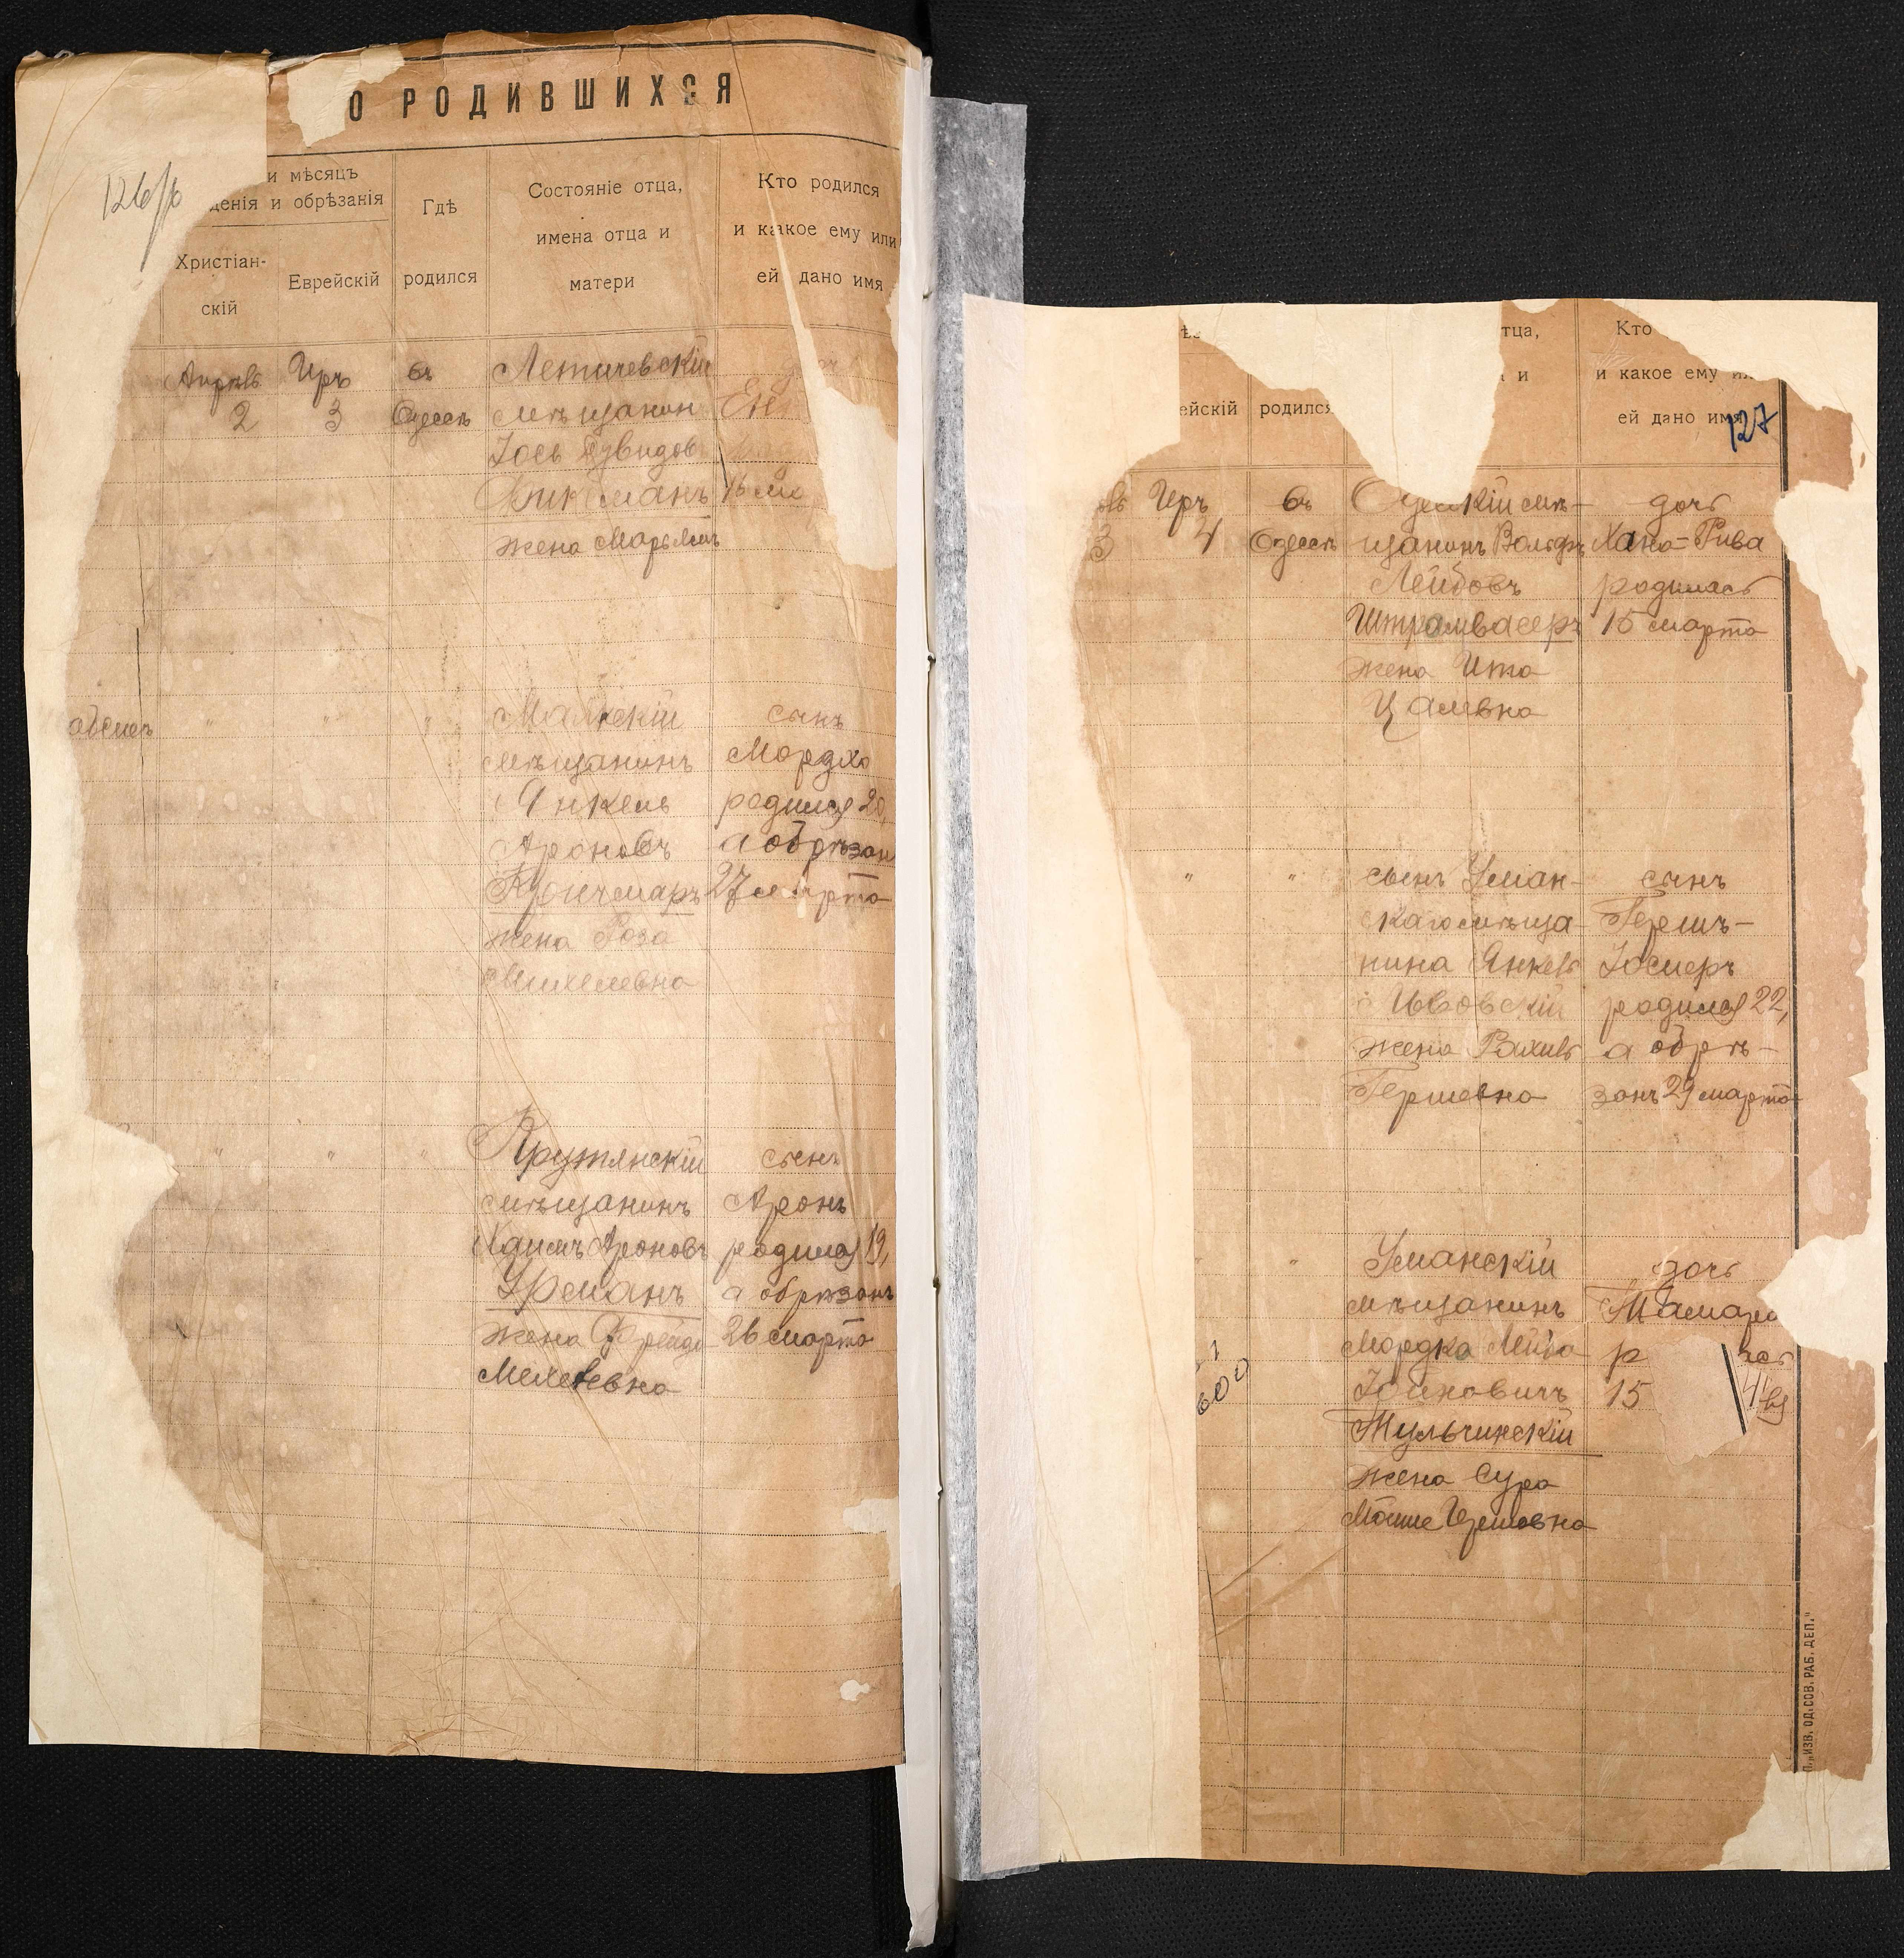 О РОДИВШИХСЯ
126/б
и мѣсяцъ
денія и обрѣзанія
Христіан-
скій
Еврейскій
Гдѣ
родился
Состояніе отца,
имена отца и
матери
Кто родился
и какое ему или
ей дано имя
Апрѣль
2
Иръ
3
въ
Одессѣ
Летичевскій
мѣщанин
Іось
жена Марьямъ
Ен
16 ма
"
"
"
мѣщанинъ
Янкель
Ароновъ
Кройчмаръ
жена Роза
Михелевна
сынъ
Мордхо
родился 20,
а обрѣзан
27 марта
"
"
"
Крутянскій
мѣщанинъ
Хаимъ Ароновъ
Урманъ
жена Фрейда
Мелевна
сынъ
Аронъ
родился 19,
а обрѣзанъ
26 марта
тца,
и
ейскій
родился
Кто
и какое ему ил
ей дано имя
127
ль
3
Иръ
4
въ
Одессѣ
Одесскій мѣ-
щанинъ Вольфъ
Лейбовъ
Штромвасеръ
жена Ита
Цалевна
дочь
Хана-Рива
родилась
15 марта
"
"
сынъ Уман-
скаго мѣща-
нина Янкель
жена Рахиль
Гершевна
сынъ
Гершъ-
Іосиеръ
родился 22,
а обрѣ-
занъ 29 марта
"
Уманскій
мѣщанинъ
Мордко Лейба
Тульчинскій
жена Сура
дочь
Тамара
р
ась
15
600
П. „ИЗВ. ОД. СОВ. РАБ. ДЕП."